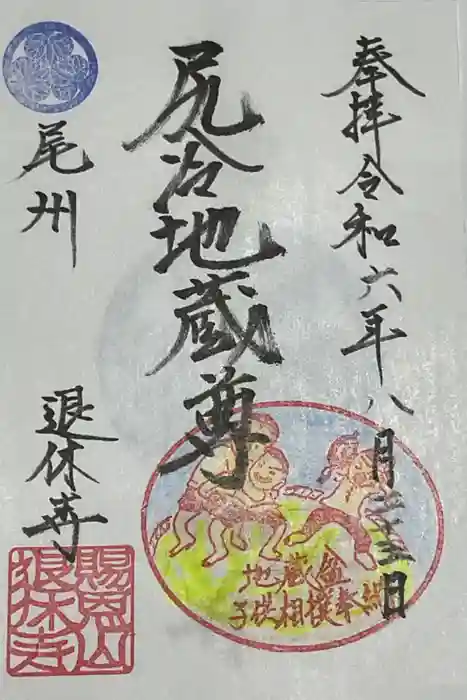 奉拝令和六年八月二十三日
尻冷地蔵尊
尾州
退休寺
地蔵盆
子供相撲奉納
賜恩山
退休寺